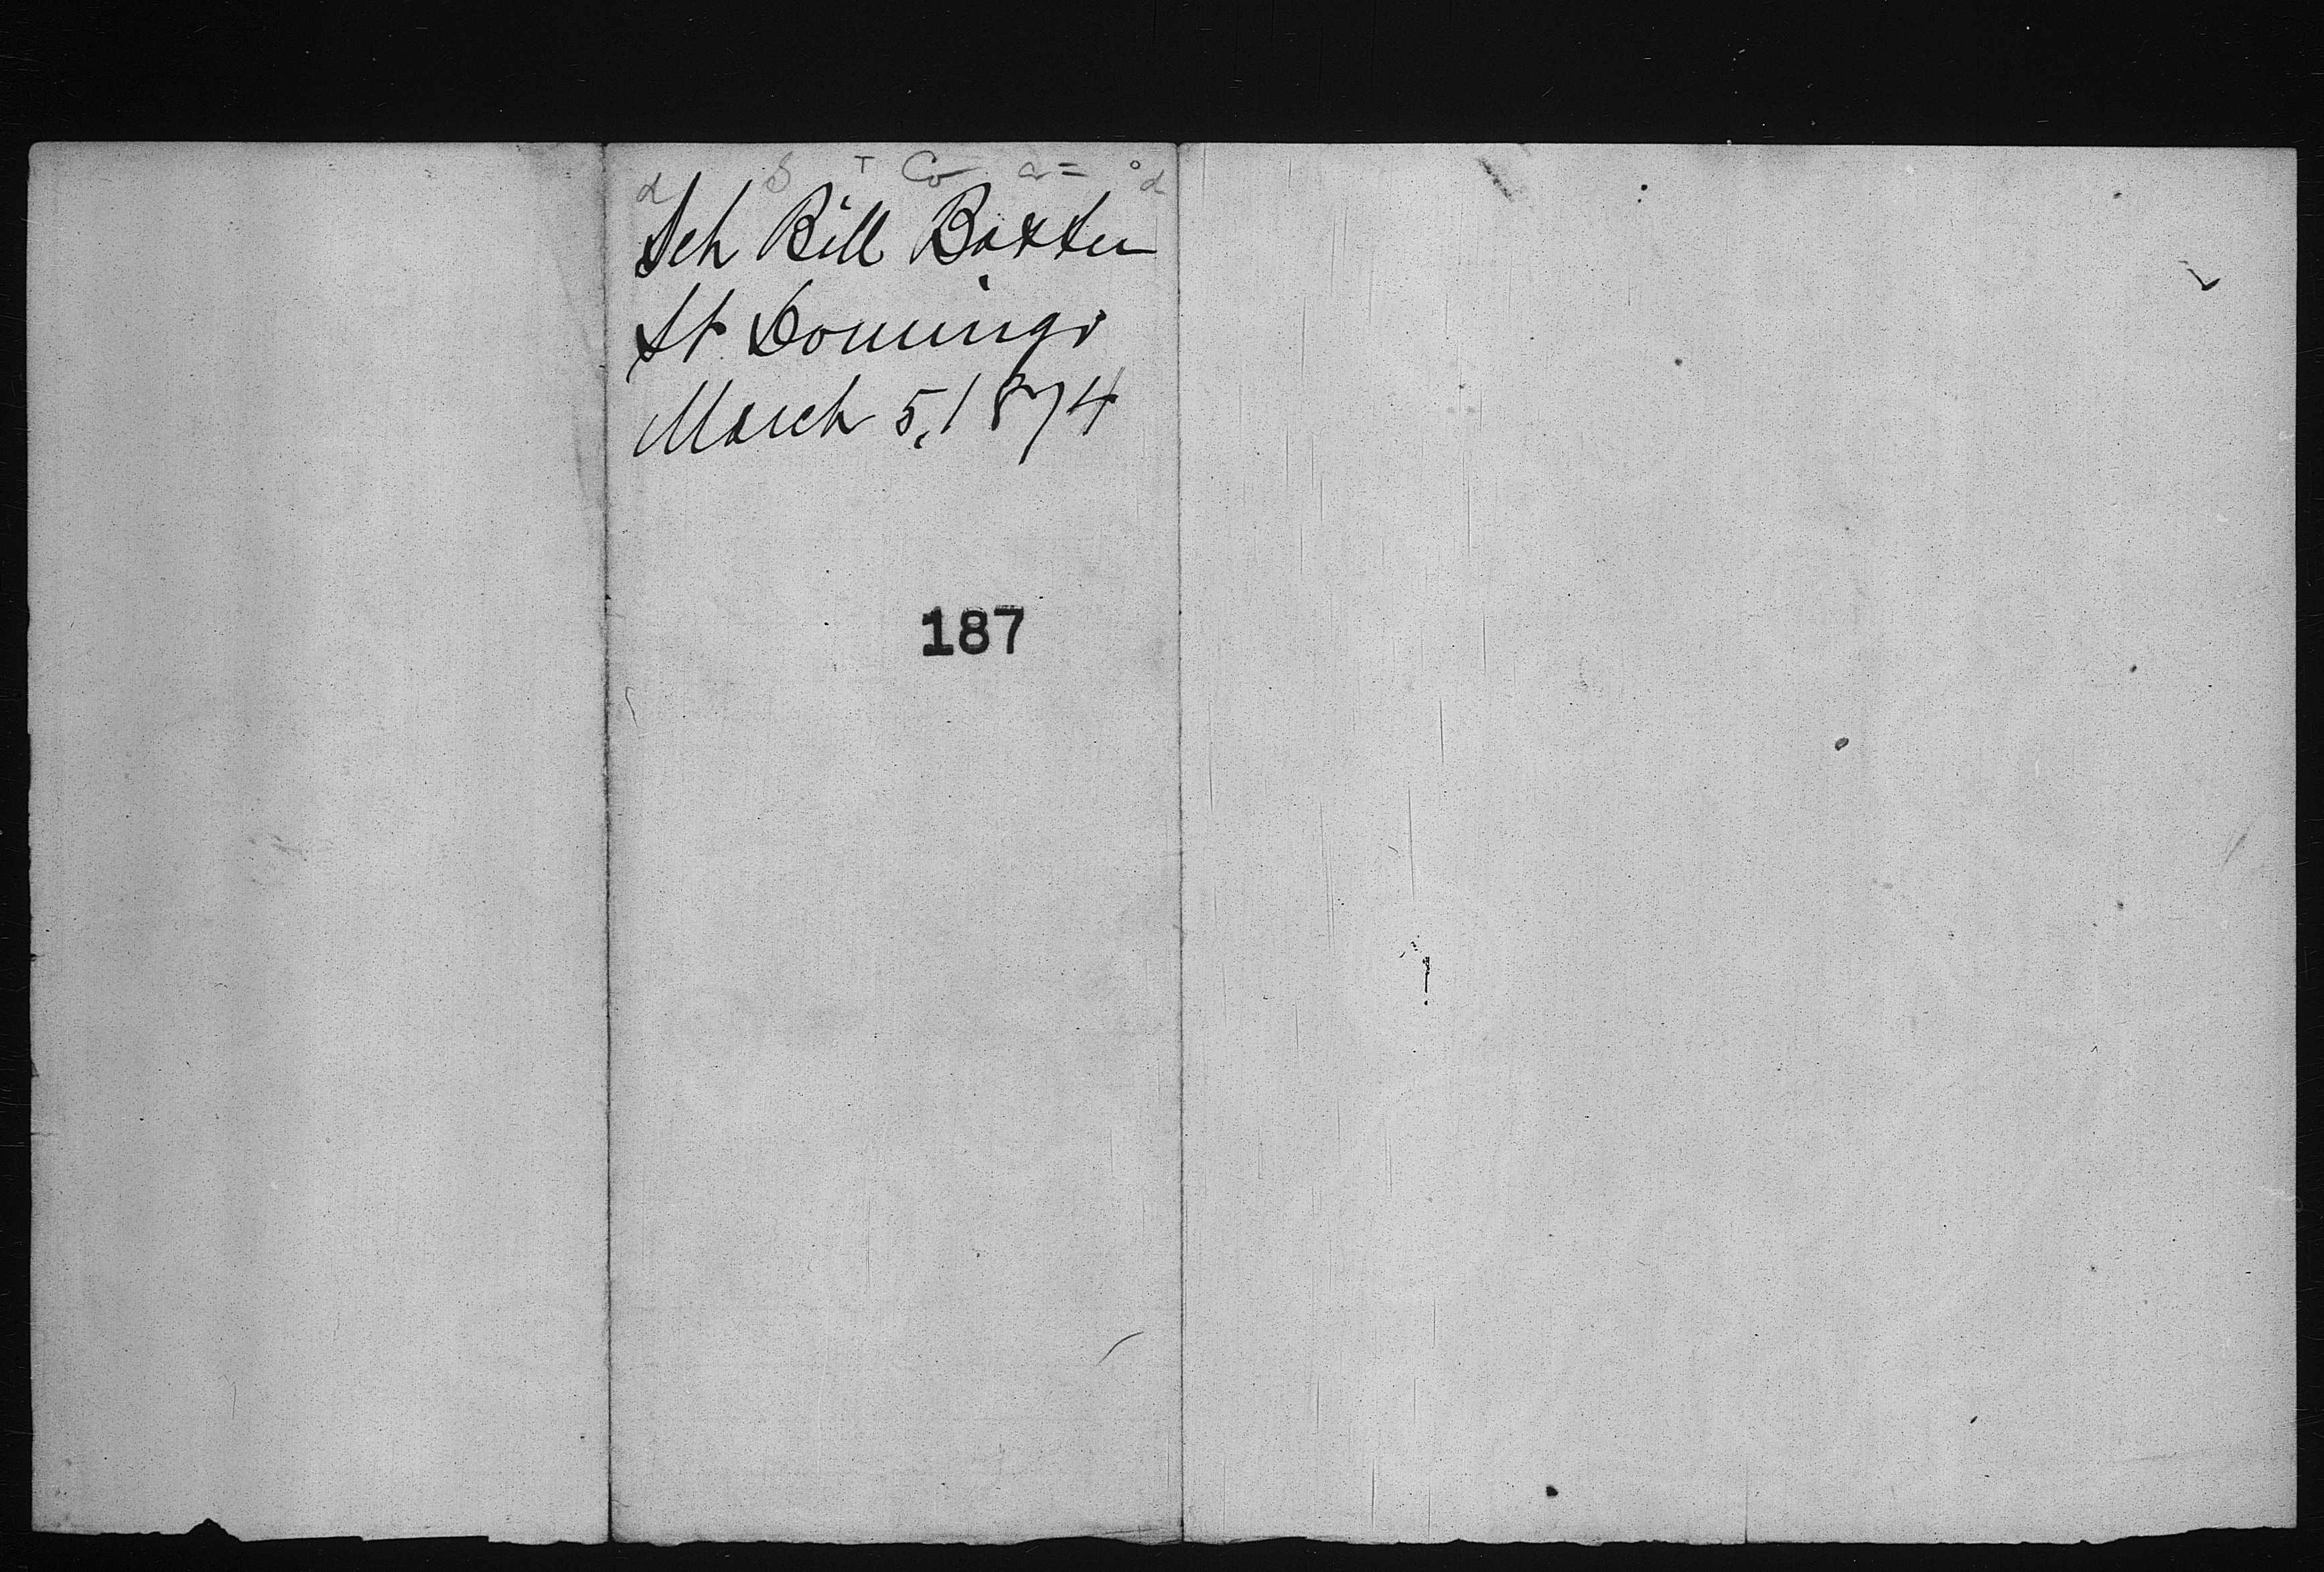 Sch Bill Baxter
St Domingo
March 5, 1874
187